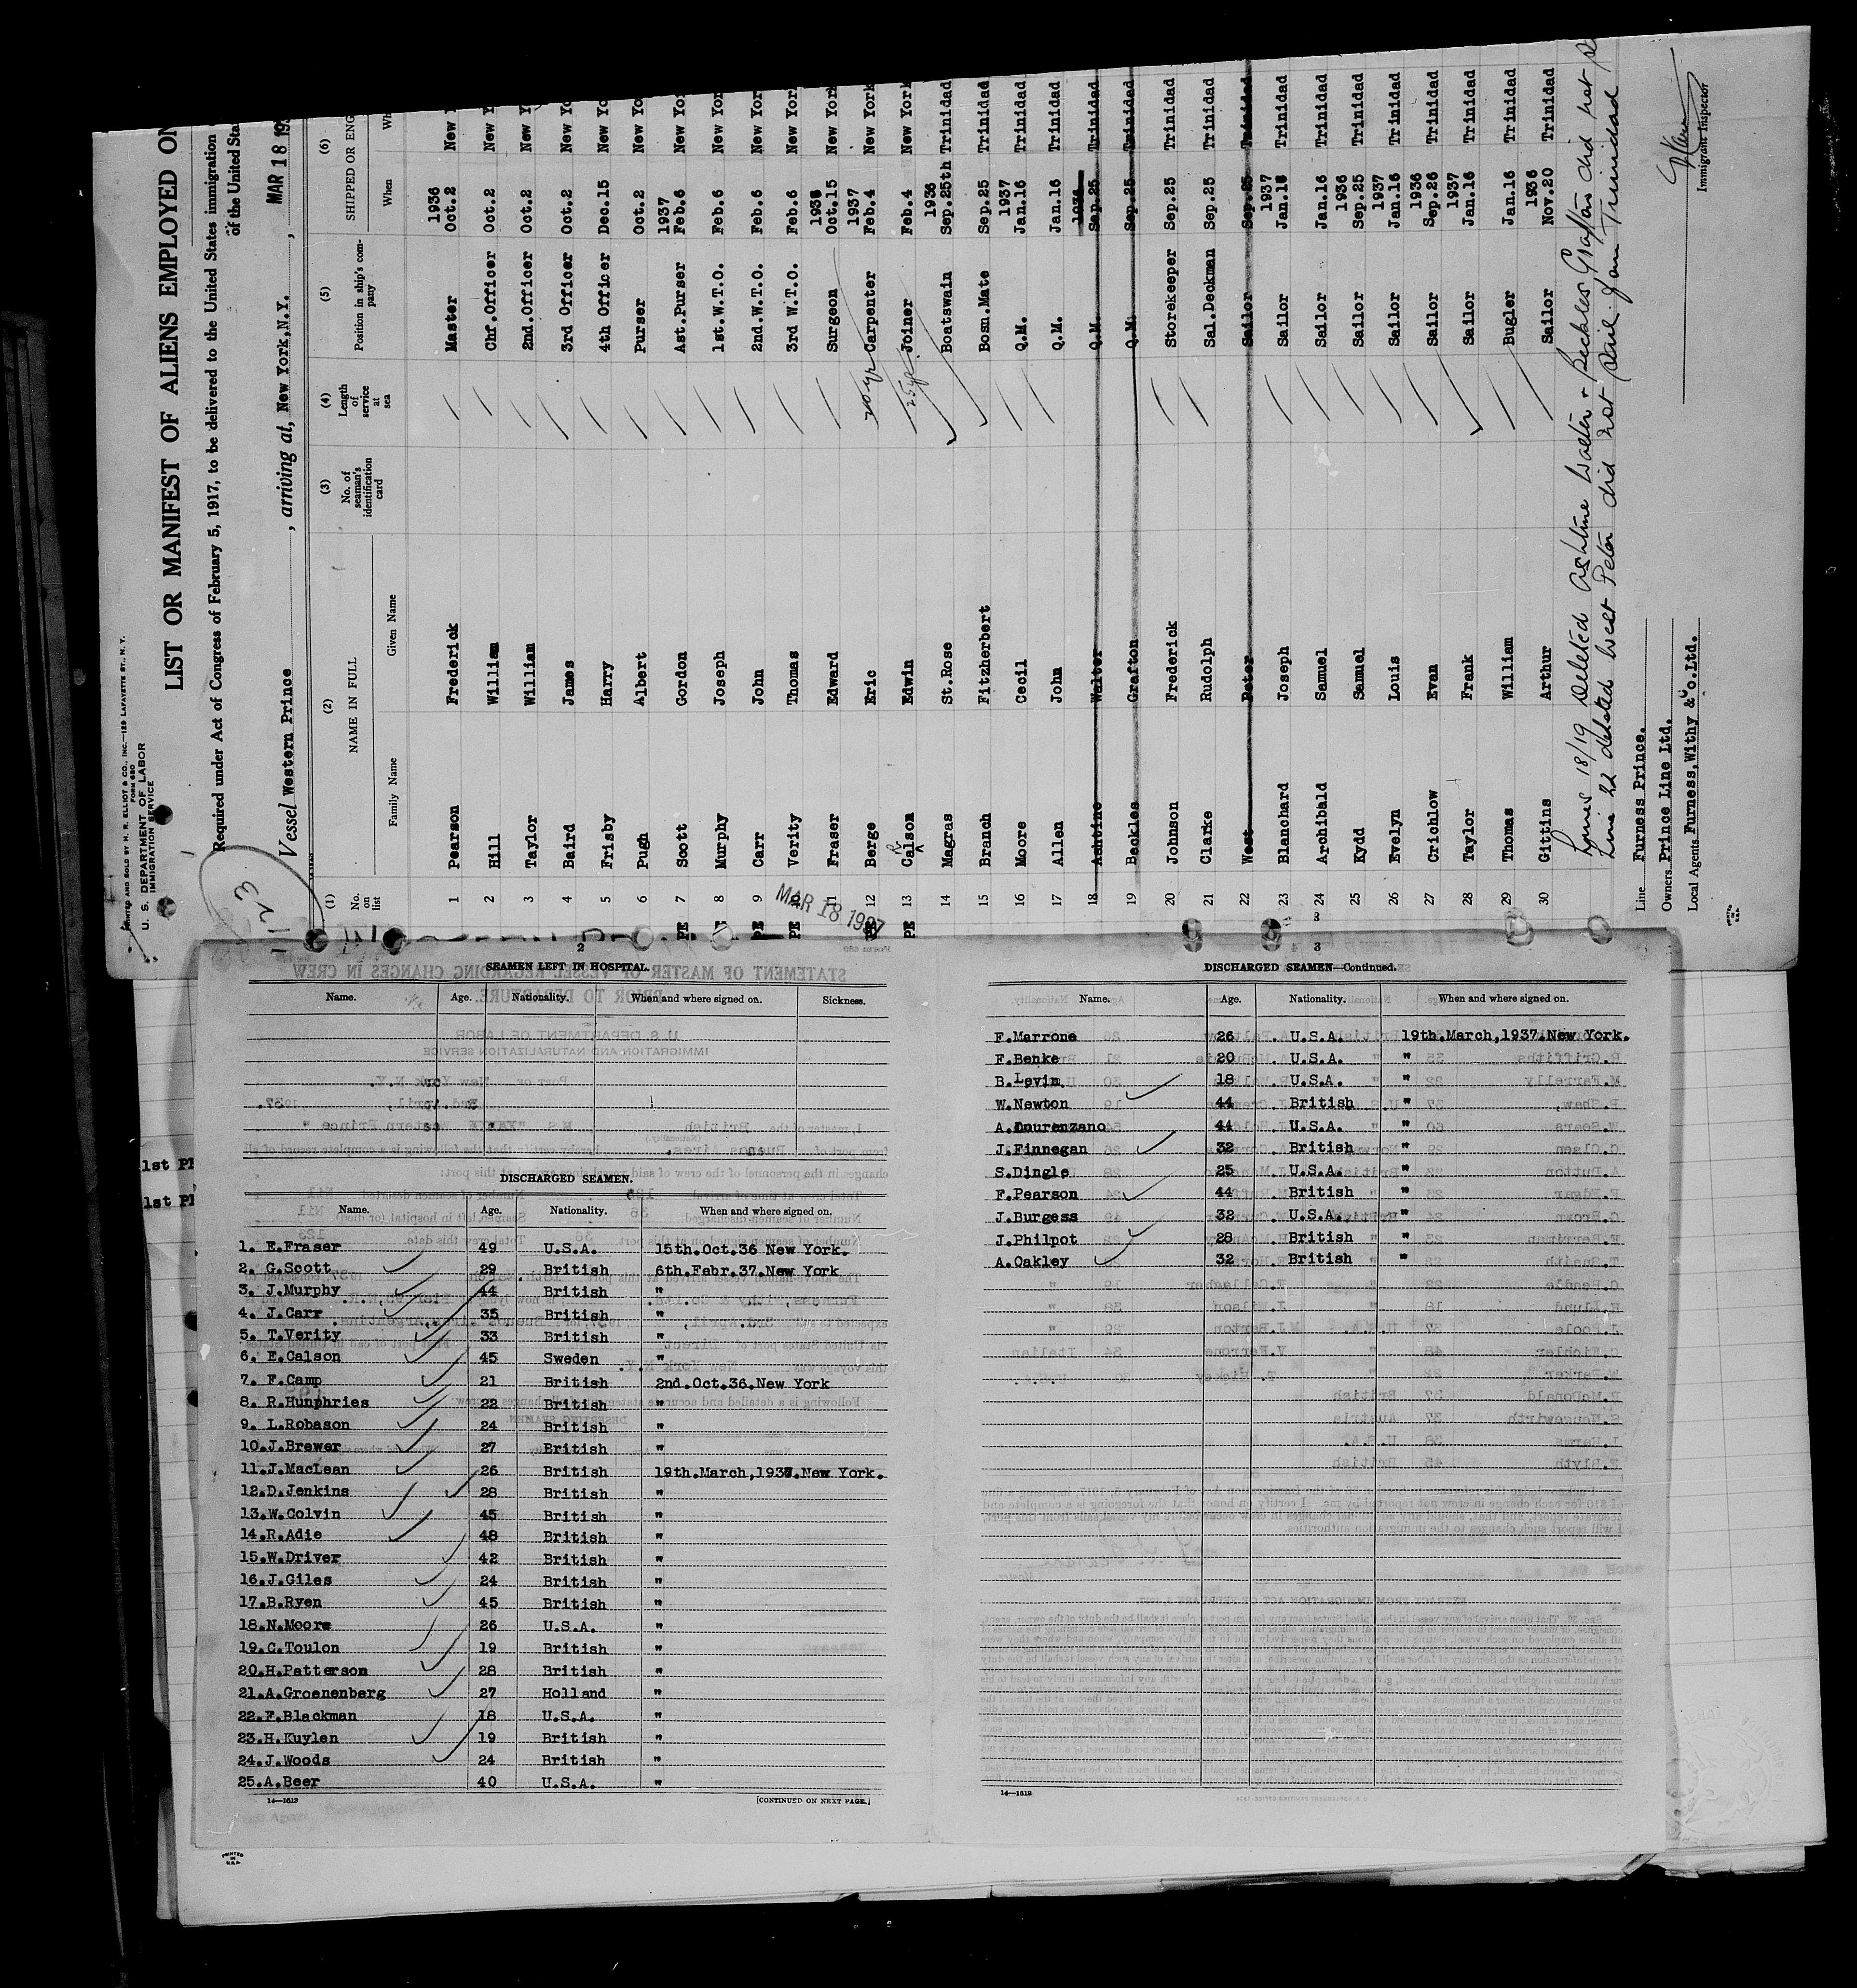 PRINTED AND SOLD BY M. R. ELLIOT & CO., INC.—129 LAFAYETTE ST., N. Y.
FORM 680
U. S. DEPARTMENT OF LABOR
IMMIGRATION SERVICE
LIST OR MANIFEST OF ALIENS EMPLOYED ON
Required under Act of Congress of February 5, 1917, to be delivered to the United States immigration
of the United Sta
Vessel Western Prince, arriving at, New York,N.Y., MAR 18 19
(1) (2) (3) (4) (5) (6)
No. on list NAME IN FULL No. of seaman's identification card Length of service at sea Position in ship's company SHIPPED OR ENG
Family Name Given Name When Wh
1 Pearson Frederick Master 1936 Oct.2 New Y
2 Hill William Chf.Officer Oct.2 New Y
3 Taylor William 2nd.Officer Oct.2 New Y
4 Baird James 3rd Officer Oct.2 New Yo
5 Frisby Harry 4th Officer Dec.15 New Yo
6 Pugh Albert Purser Oct.2 New Yo
PE 7 Scott Gordon Ast.Purser 1937 Feb.6 New Yor
8 Murphy Joseph 1st.W.T.O. Feb.6 New Yor
PE 9 Carr John 2nd.W.T.O. Feb.6 New Yor
PE 10 Verity Thomas 3rd W.T.O. Feb.6 New York
11 Fraser Edward Surgeon 1936 Oct.15 New York
PE 12 Berge Eric 20 yr Carpenter 1937 Feb.4 New York
PE 13 Calson Edwin 25 yr Joiner Feb.4 New York
14 Magras St.Rose Boatswain 1936 Sep.25th Trinidad
15 Branch Fitzherbert Bosn.Mate Sep.25 Trinidad
16 Moore Cecil Q.M. 1937 Jan.16 Trinidad
17 Allen John Q.M. Jan.16 Trinidad
18 Ashtine Walter Q.M. 1936 Sep.25 Trinidad
19 Beckles Grafton Q.M. Sep.25 Trinidad
20 Johnson Frederick Storekeeper Sep.25 Trinidad
21 Clarke Rudolph Sal.Deckman Sep.25 Trinidad
22 West Peter Sailor Sep.25 Trinidad
23 Blanchard Joseph Sailor 1937 Jan.16 Trinidad
24 Archibald Samuel Sailor Jan.16 Trinidad
25 Kydd Samuel Sailor 1936 Sep.25 Trinidad
26 Evelyn Louis Sailor 1937 Jan.16 Trinidad
27 Crichlow Evan Sailor 1936 Sep.26 Trinidad
28 Taylor Frank Sailor 1937 Jan.16 Trinidad
29 Thomas William Bugler Jan.16 Trinidad
30 Gittins Arthur Sailor 1936 Nov.20 Trinidad
MAR 18 1937
Lines 18/19 deleted Ashtine Walter & Beckles Grafton did not
Line 22 deleted West Peter did not sail from Trinidad
Line Furness Prince.
Owners Prince Line Ltd.
Local Agents Furness,Withy & Co.Ltd.
Immigrant Inspector
2
SEAMEN LEFT IN HOSPITAL.
Name. Age. Nationality. When and where signed on. Sickness.
DISCHARGED SEAMEN.
Name. Age. Nationality. When and where signed on.
1. E.Fraser 49 U.S.A. 15th.Oct.36 New York.
2. G.Scott 29 British 6th.Febr.37.New York
3. J.Murphy 44 British "
4. J.Carr 35 British "
5. T.Verity 33 British "
6. E.Calson 45 Sweden "
7. F.Camp 21 British 2nd.Oct.36.New York
8. R.Hunphries 22 British "
9. L.Robason 24 British "
10.J.Brewer 27 British "
11.J.MacLean 26 British 19th.March,1937.New York.
12.D.Jenkins 28 British "
13.W.Colvin 45 British "
14.R.Adie 48 British "
15.W.Driver 42 British "
16.J.Giles 24 British "
17.B.Ryen 45 British "
18.N.Moore 26 U.S.A. "
19.C.Toulon 19 British "
20.H.Patterson 28 British "
21.A.Groenenberg 27 Holland "
22.F.Blackman 18 U.S.A. "
23.H.Kuylen 19 British "
24.J.Woods 24 British "
25.A.Beer 40 U.S.A. "
14—1613 [CONTINUED ON NEXT PAGE.]
3
DISCHARGED SEAMEN—Continued.
Name. Age. Nationality. When and where signed on.
F.Marrone 26 U.S.A. 19th.March,1937.New York.
F.Benke 20 U.S.A. "
B.Levin 18 U.S.A. "
W.Newton 44 British "
A.Lourenzano 44 U.S.A. "
J.Finnegan 32 British "
S.Dingle 25 U.S.A. "
F.Pearson 44 British "
J.Burgess 32 U.S.A. "
J.Philpot 28 British "
A.Oakley 32 British "
14—1613
1st PE
1st PE
PRINTED IN U.S.A.